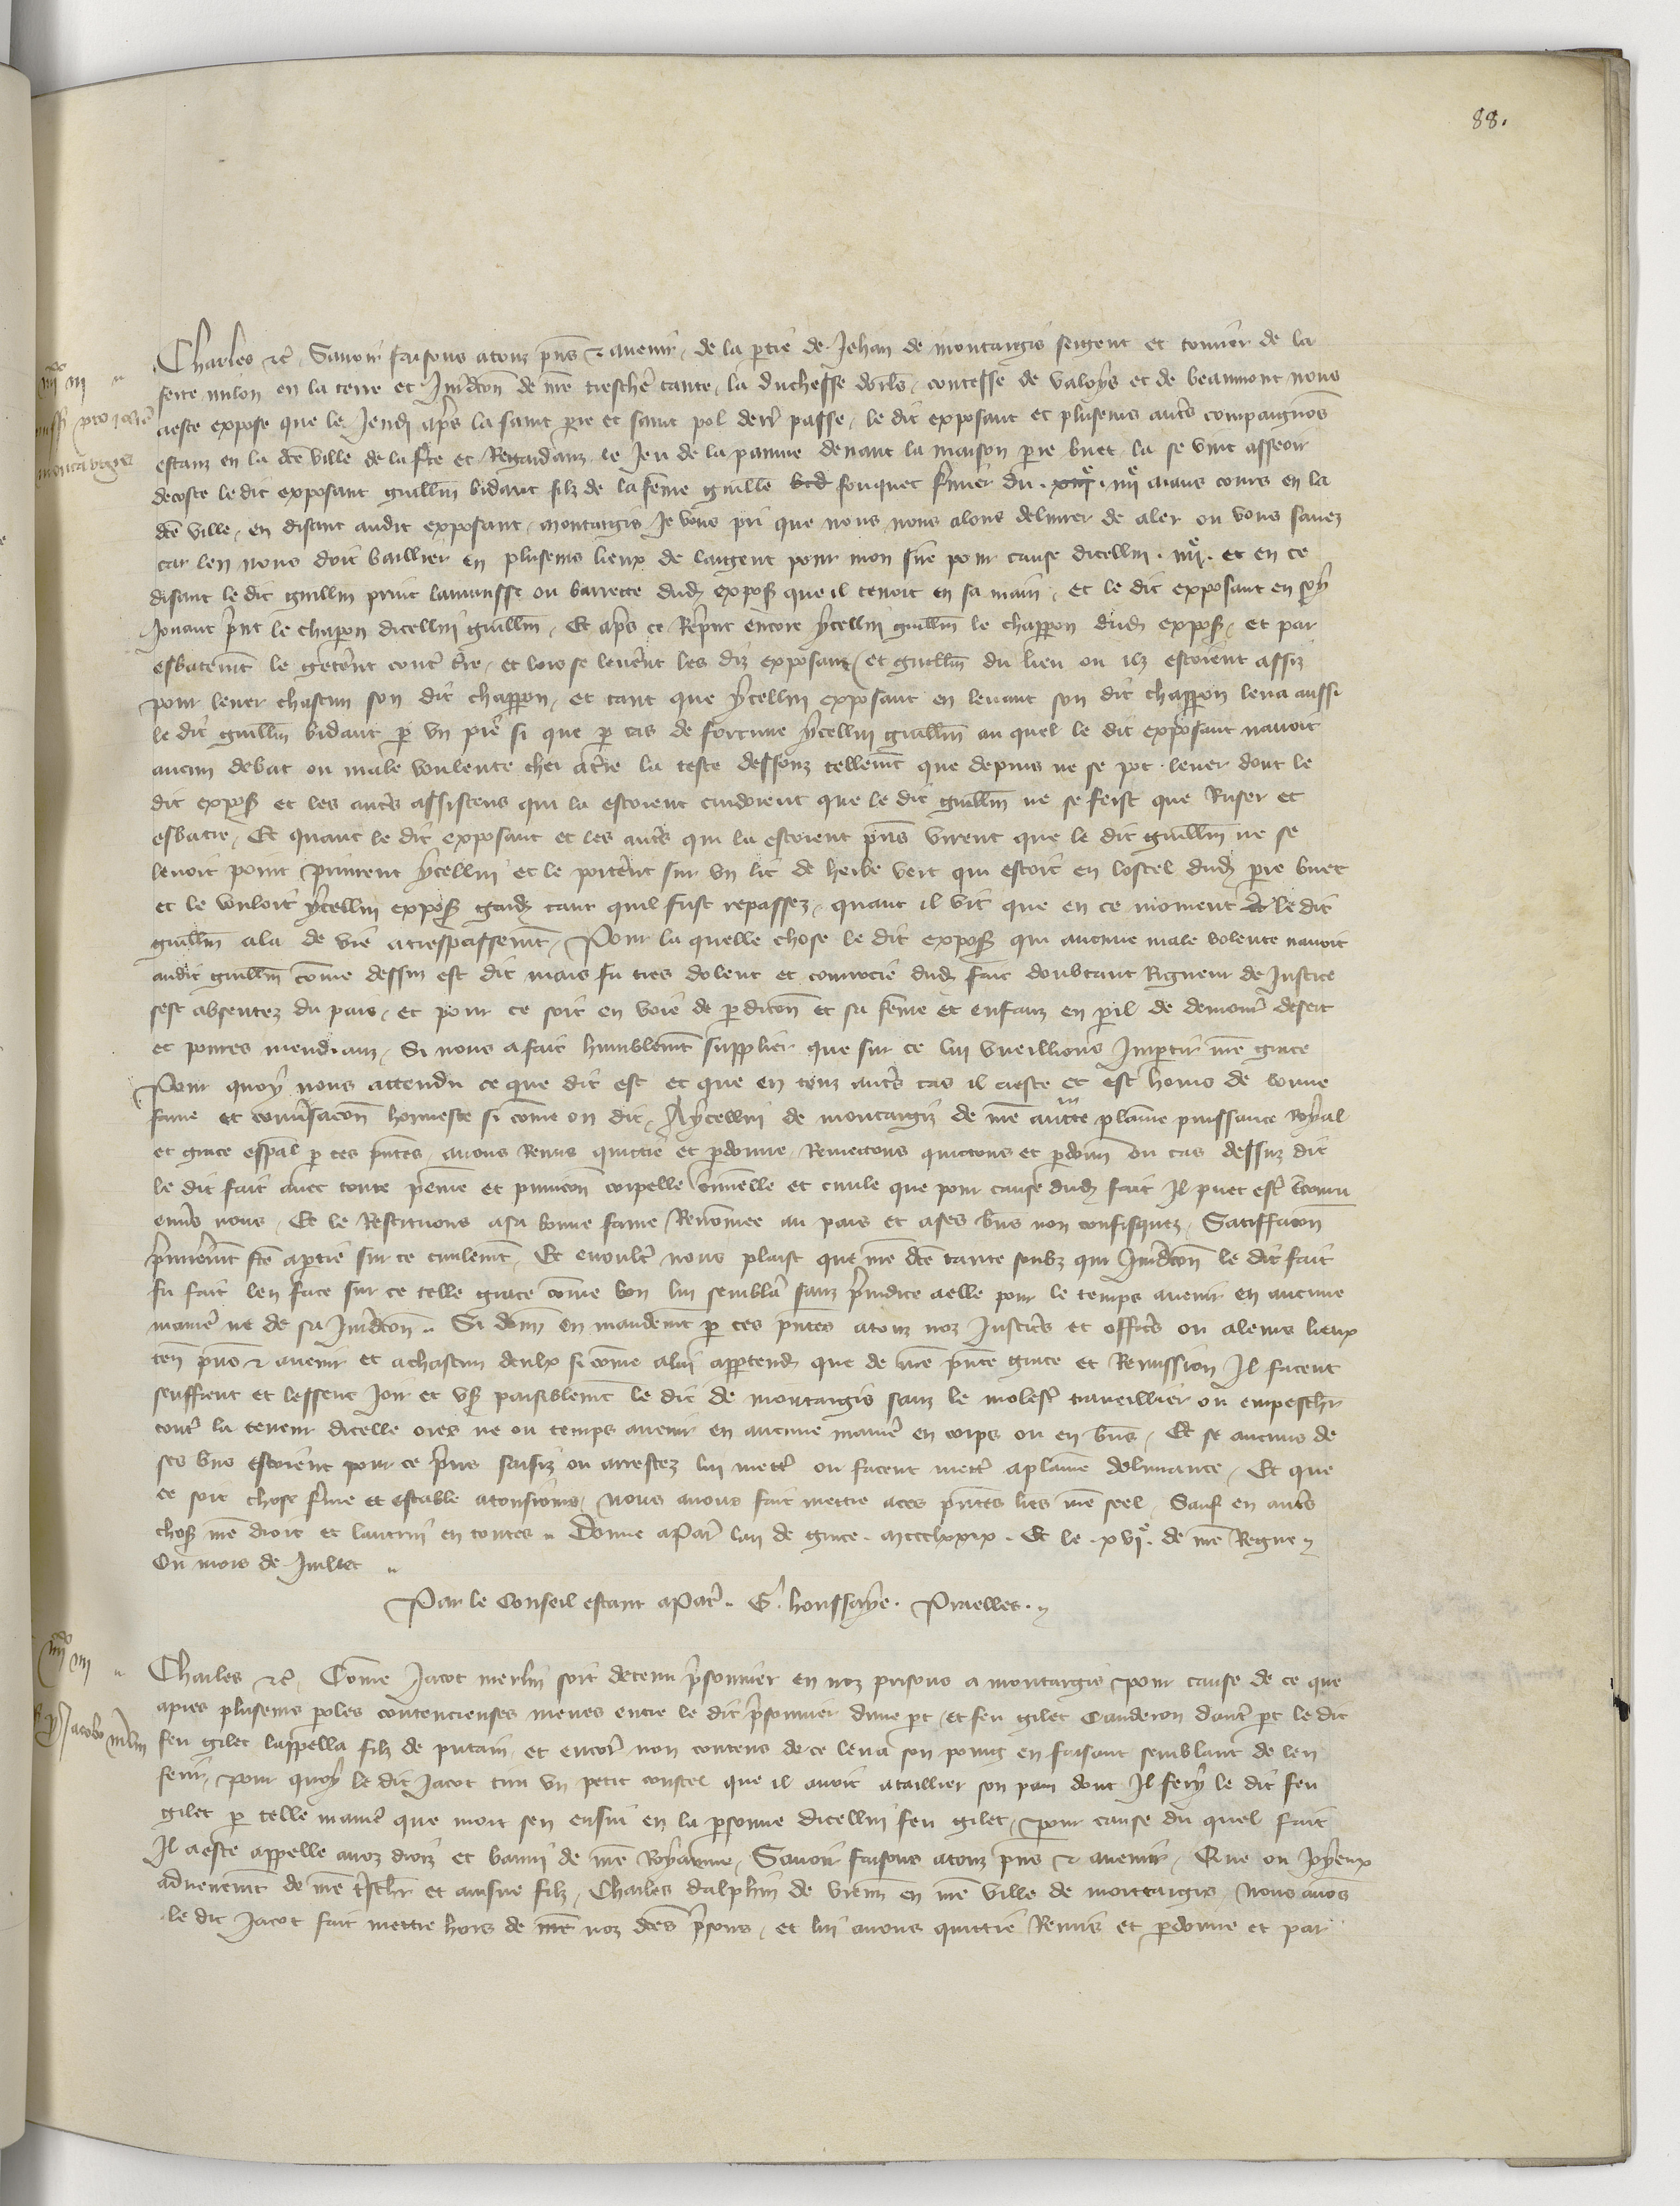 88.
Charles etc. Savoir faisons a touz pns et avenir, de la partie de Jehan de montargis sergent et tonnier de la
ferte milon en la terre et Juridicon de nre treschere tante, la duchesse dorlens, contesse de valoys et de beaumont nous
a este expose que le Jeudi apres la saint pere et saint pol derr passe, le dit exposant et pluseurs autres compaignons
estanz en la dce ville de la fte et Regardanz le Jeu de la paume devant la maison pre buet, la se vint asseoir
decoste le dit exposant guillm bidaut filz de la feme guille bid fouquet fmier du xiiie iiiie aians cours en la
dce ville, en disant audit exposant, montargis Je vous pri que nous nous alons delivrer de aler ou vous savez
car len nous doit baillier en pluseurs lieux de largent pour mon sire pour cause dicellui iiiie et en ce
disant le dit guillm print laumusse ou barrette dud expos que il tenoit en sa main, et le dit exposant en soy
Jouant prnt le chapon dicellui guillm, Et apres ce Reprnt encore ycellui guillm le chappon dud expos, et par
esbatemt le geterent contre tre, et lors se leverent les diz exposant et guillm du lieu ou ilz estoient assiz
pour lever chascun son dit chappon, et tant que ycellui exposant en levant son dit chappon leva aussi
le dit guillm bidaut p un pie si que p cas de fortune ycellui guillm au quel le dit exposant navoit
aucun debat ou male voulente chei a tre la teste dessouz tellemt que depuis ne se pot lever dont le
dit expos et les autres assistens qui la estoient cuidoient que le dit guillm ne se feist que Ruser et
esbatre, Et quant le dit exposant et les autres qui la estoient pns virent que le dit guillm ne se
levoit point prinrent ycellui et le porterent sur un lit de herbe vert qui estoit en lostel dud pre buet
et le vouloit ycellui expos gard tant quil fust repassez, quant il vit que en ce moment le dit
guillm ala de vie a trespassemt, Pour la quelle chose le dit expos qui aucune male volente navoit
audit guillm come dessus est dit mais fu tres dolent et courrocie dud fait doubtant Rigueur de Justice
sest absentez du pais, et pour ce soit en voie de pdicon et sa feme et enfanz en peril de demourer desert
et povres mendianz, Si nous a fait humblemt supplier que sur ce lui vueillions Impartir nre grace
Pour quoy nous attendu ce que dit est et que en touz autres cas il a este et est homs de bonne
fame et conversacon honneste si come on dit, A ycellui de montargis de nre auctte plaine puissance Royal
et grace espal p ces pntes, avons Remis quittie et pdonne, Remettons quittons et pdonn ou cas dessus dit
le dit fait avec toute peine et punicon corpelle criminelle et civile que pour cause dud fait Il puet estre encouru
envers nous, Et le Restituons a sa bonne fame Renomee au pais et a ses bns non confisquez, Satisfacon
premieremt fce a partie sur ce civilemt, Et en oultre nous plaist que nre dce tante soubz qui Juridicon le dit fait
fu fait len face sur ce telle grace come bon lui semblera sanz prejudice a elle pour le temps avenir en aucune
maniere ne de sa Juridicon. Si donn en mandemt p ces pntes a touz noz Justiciers et officiers ou a leurs lieux
ten pns et avenir et a chascun deulx si come a lui appartend que de nre pnte grace et Remission Il facent
seuffrent et lessent Joir et us paisiblemt le dit de montargis sanz le molester traveillier ou empeschr
contre la teneur dicelle ores ne ou temps avenir en aucune maniere en corps ou en bns, Et se aucuns de
ses bns estoient pour ce prins saisiz ou arrestez lui mettre ou facent mettre a plaine delivrance, Et que
ce soit chose ferme et estable a tousjours, Nous avons fait mettre a ces pntes lres nre seel, Sauf en autres
choses nre droit et lautrui en toutes. Donne a Paris lan de grace mccclxxix Et le xvie de nre Regne
Ou mois de Juillet
Par le Conseil estant a Paris. G. houssaye. Prielles.
Charles etc. Come Jacot merlin soit detenu prisonnier en noz prisons a montargis pour cause de ce que
apres pluseurs poles contencieuses meues entre le dit prisonnier dune pt, et feu gilet Cauderon dautre pt le dit
feu gilet lappella filz de putain et encore non contens de ce leva son poing en faisant semblant de len
ferir, pour quoy le dit Jacot tira un petit coustel que il avoit a taillier son pain dont Il fery le dit feu
gilet p telle maniere que mort sen ensui en la psonne dicellui feu gilet, pour cause du quel fait
Il a este appelle a noz droiz et banni de nre Royaume, Savoir faisons a touz pns et avenir, Que ou Joyeux
advenemt de nre treschr et ainsne filz, Charles dalphin de vienn en nre ville de montargis, Nous avons
le dit Jacot fait mettre hors de nre noz dces prisons, et lui avons quittie Remis et pdonne et par